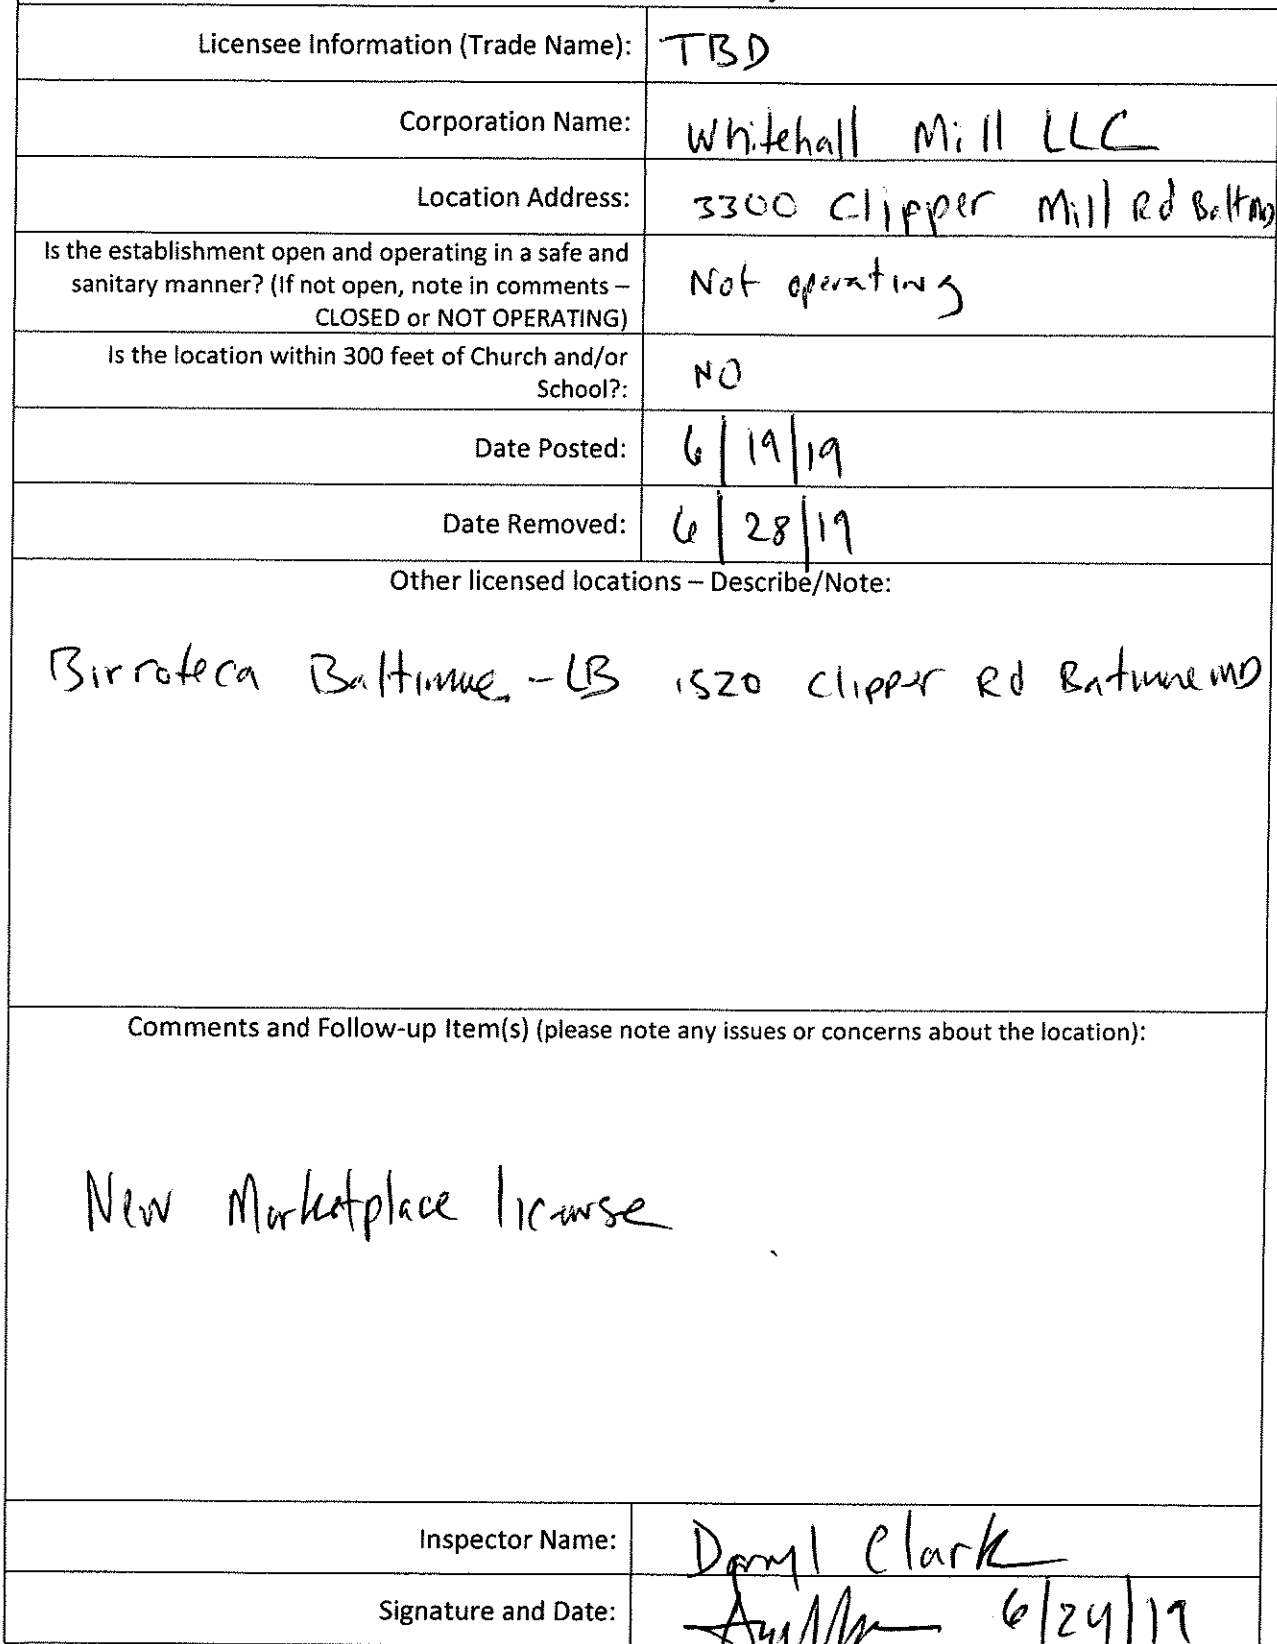 Licensee Information (Trade Name): TBD
Corporation Name: Whitehall Mill LLC
Location Address: 3300 Clipper Mill Rd Balt MD
Is the establishment open and operating in a safe and
sanitary manner? (If not open, note in comments – Not operating
CLOSED or NOT OPERATING)
Is the location within 300 feet of Church and/or
School?: NO
Date Posted: 6/19/19
Date Removed: 6/28/19
Other licensed locations – Describe/Note:
Birroteca Baltimore - LB 1520 Clipper Rd Batimore MD
Comments and Follow-up Item(s) (please note any issues or concerns about the location):
New Marketplace license
Inspector Name: Darryl Clark
Signature and Date: 6/24/19